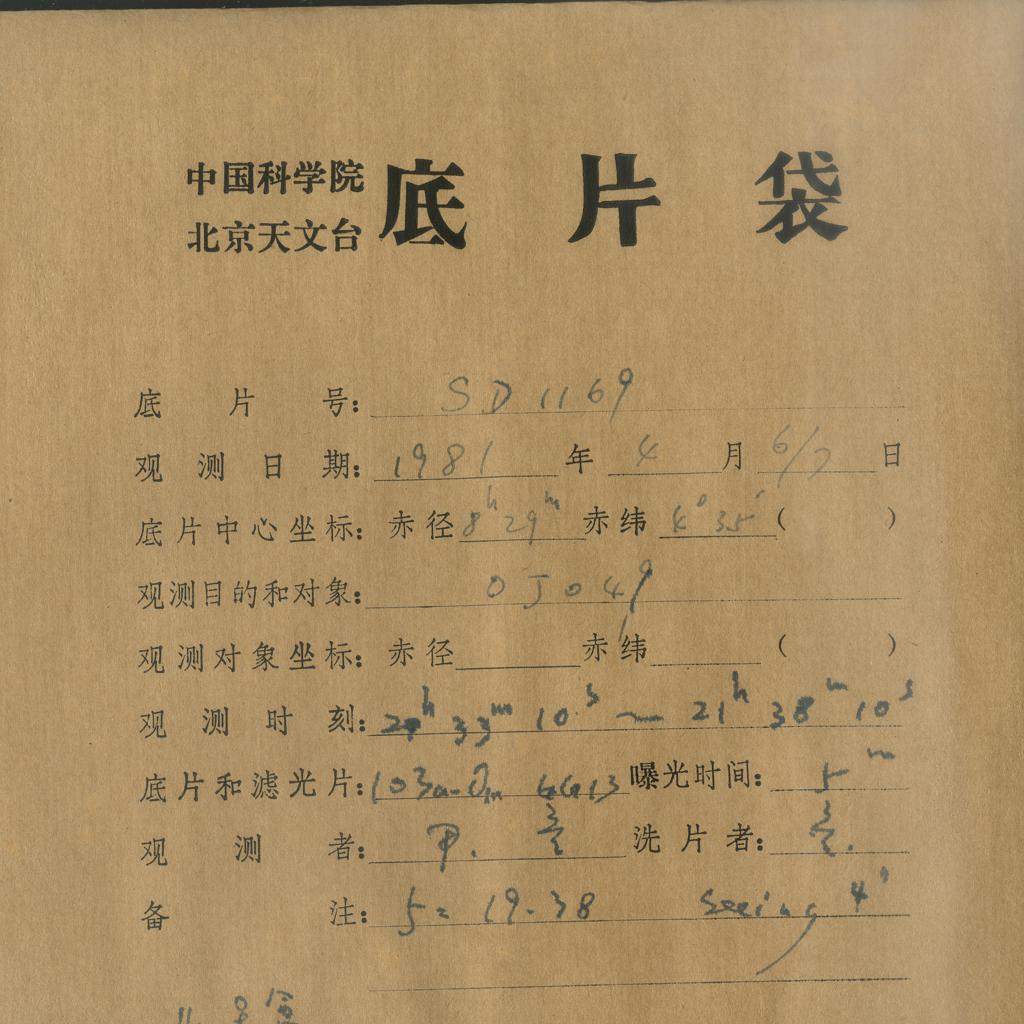 中国科学院
北京天文台
底片袋
底片号: SD1169
观测日期: 1981年4月6/7日
底片中心坐标: 赤径 8h29m 赤纬 4°35′ ( )
观测目的和对象: OJ049
观测对象坐标: 赤径 赤纬 ( )
观测时刻: 33m 10s ~ 21h 38m 10s
底片和滤光片: 103a- GG13 曝光时间: 5m
观测者: 洗片者:
备注: S= 19.38 Seeing 4"